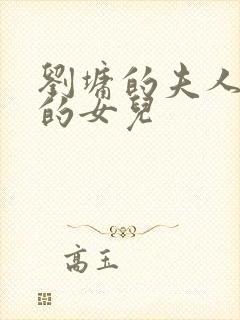 劉墉的夫人
的女兒
高玉